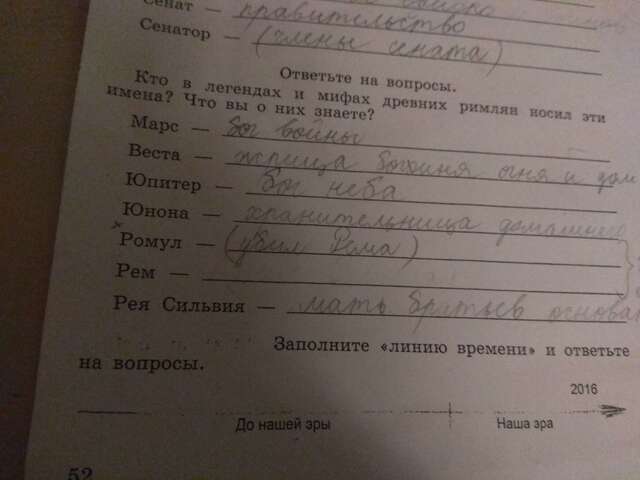 Сенат — правительство
Сенатор — (члены сената)
Ответьте на вопросы.
Кто в легендах и мифах древних римлян носил эти
имена? Что вы о них знаете?
Марс — бог войны
Веста — жрица богиня огня и дом
Юпитер — бог неба
Юнона — хранительница домашнего
Ромул — (убил Рема)
Рем —
Рея Сильвия — мать братьев основа
Заполните «линию времени» и ответьте
на вопросы.
2016
До нашей эры Наша эра
52